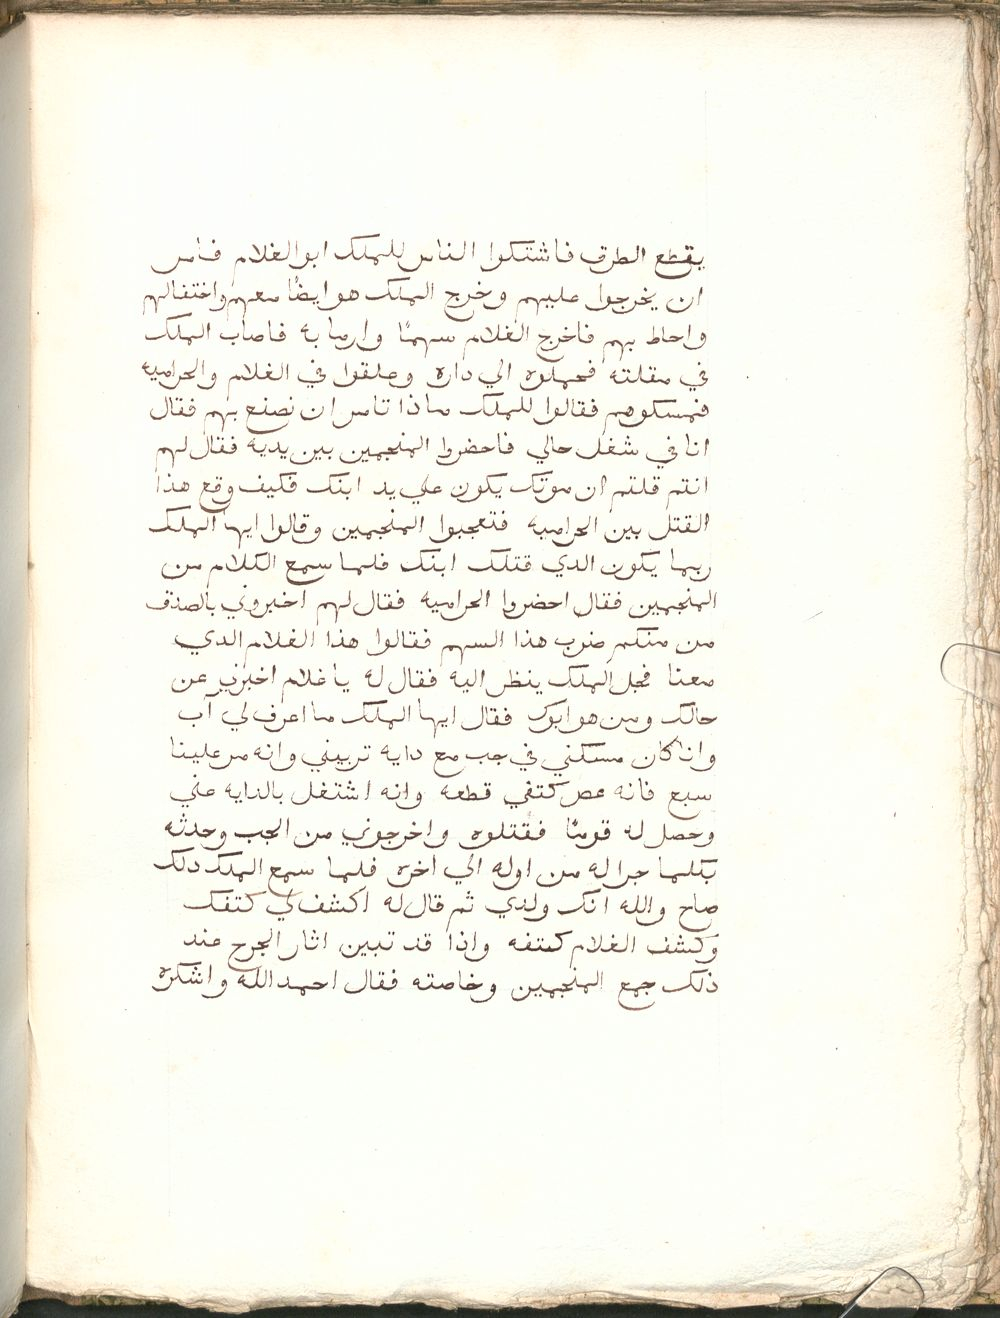 يقطع الطرق فاشتكوا الناس للملك ابو الغلام فامر
ان يخرجوا عليهم وخرج الملك هو ايضًا معهم واختفالهم
واحاط بهم فاخرج الغلام سهمًا وارما به فاصاب الملك
في مقلته فحملوه الي داره وعلقوا في الغلام والحراميه
فمسكوهم فقالوا للملك ماذا تامر ان نصنع بهم فقال
انا في شغل حالي فاحضروا المنجمين بين يديه فقال لهم
انتم قلتم ان موتك يكون علي يد ابنك فكيف وقع هذا
القتل بين الحراميه فتعجبوا المنجمين وقالوا ايها الملك
ربما يكون الدي قتلك ابنك فلما سمع الكلام من
المنجمين فقال احضروا الحراميه فقال لهم اخبروني بالصدق
من منكم ضرب هذا السهم فقالوا هذا الغلام الدي
معنا فجل الملك ينظر اليه فقال له يا غلام اخبرني عن
حالك ومن هو ابوك فقال ايها الملك ما اعرف لي أب
وانا كان مسكني في جب مع دايه تربيني وانه مر علينا
سبع فانه عض كتفي قطعه وانه اشتغل بالدايه عني
وحصل له قومًا فقتلوه واخرجوني من الجب وحدثه
بكلما جرا له من اوله الي اخره فلما سمع الملك دلك
صاح والله انك ولدي ثم قال له اكشف لي كتفك
وكشف الغلام كتفه واذا قد تبين اثار الجرح عند
ذلك جمع المنجمين وخاصته فقال احمد الله واشكره